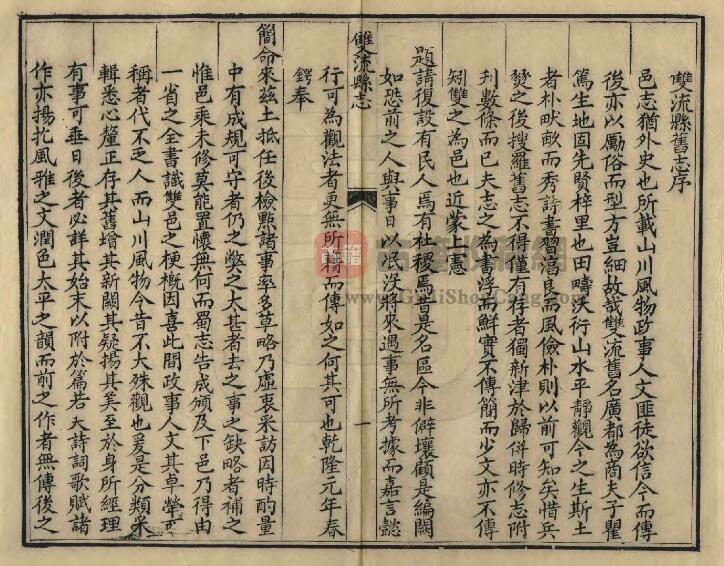 雙流縣舊志序
邑志猶外史也所載山川風物政事人文匪徒欲信今而傳
後亦以勵俗而型方豈細故哉雙流舊名廣都為商夫子瞿
篤生地固先賢梓里也田疇沃衍山水平靜觀今之生斯土
者朴畎畝而秀詩書習淳良而風儉朴則以前可知矣惜兵
燹之後搜羅舊志不得僅有存者獨新津於歸併時修志附
刋數條而已夫志之為書浮而鮮實不傳簡而少文亦不傳
矧雙之為邑也近蒙上憲
題請復設有民人焉有社稷焉昔是名區今非僻壤顧是編闕
如恐前之人與事日以泯沒將來遇事無所考據而嘉言懿
雙流縣志
一
行可為觀法者更無所藉而傳如之何其可也乾隆元年春
鍔奉
簡命來茲土抵任後檢點諸事率多草略乃虛衷采訪因時酌量
中有成規可守者仍之獘之大甚者去之事之缺略者補之
惟邑乘未修莫能置懷無何而蜀志告成頒及下邑乃得由
一省之全書識雙邑之梗概因喜此間政事人文其卓犖可
稱者代不乏人而山川風物今昔不大殊觀也爰是分類采
輯悉心釐正存其舊增其新闕其疑揚其美至於身所經理
有事可垂日後者必詳其始末以附於篇若夫詩詞歌賦諸
作亦揚扢風雅之文潤色太平之韻而前之作者無傳後之